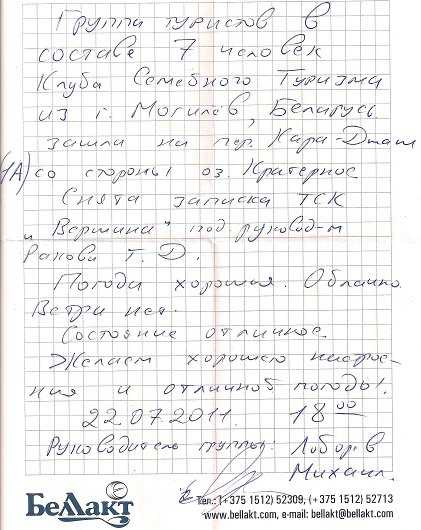 Группа туристов в
составе 7 человек
Клуба Семейного Туризма
из г. Могилёв, Беларусь
зашла на пер. Кара-Джаш
(1А) со стороны оз. Кратерное
Снята записка ТСК
"Вершина" под руковод-м
Ракова Т. Д.
Погода хорошая. Облачно.
Ветра нет.
Состояние отличное.
Желаем хорошего настрое-
ния и отличной погоды!
22.07.2011. 18 00
Руководитель группы:
Михаил.
БеЛЛакт
Тел.: (+375 1512) 52309, (+375 1512) 52713
www.bellakt.com, e-mail: bellakt@bellakt.com